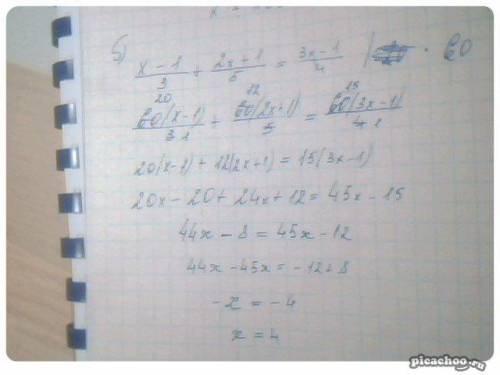 б) x-1/3 + 2x+1/5 = 3x-1/4 | · 60
20 12 15
60(x-1)/3 1 + 60(2x+1)/5 = 60(3x-1)/4 1
20(x-1) + 12(2x+1) = 15(3x-1)
20x - 20 + 24x + 12 = 45x - 15
44x - 8 = 45x - 12
44x - 45x = -12+8
-x = -4
x = 4
picachoo.ru